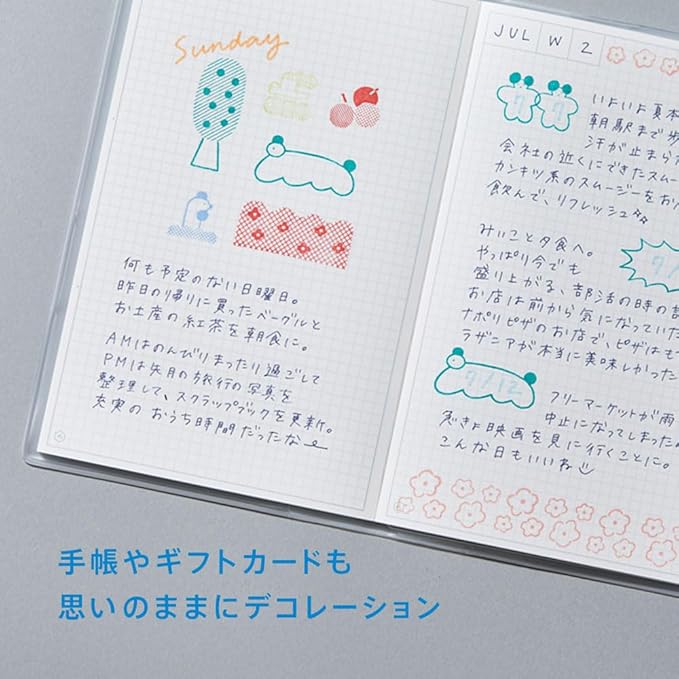 Sunday
何も予定のない日曜日。
昨日の帰りに買ったベーグルと
お土産の紅茶を朝食に。
AMはのんびりまったり過ごして
PMは先月の旅行の写真を
整理して、スクラップブックを更新。
充実の おうち時間だったな
JUL W 2
いよいよ真
朝駅まで歩
汗が止まら
会社の近くにできたスムー
カンキツ系のスムージーをお
飲んで、リフレッシュ
みいこと夕食へ。
やっぱり今でも
盛り上がる、部活の時の
お店は前から気になっていた
ナポリピザのお店で、ピザはも
ラザニアが本当に美味しかった
7/12
フリーマーケットが雨
中止になってしまった
急きょ映画を見に行くことに。
こんな日もいいね
手帳やギフトカードも
思いのままにデコレーション